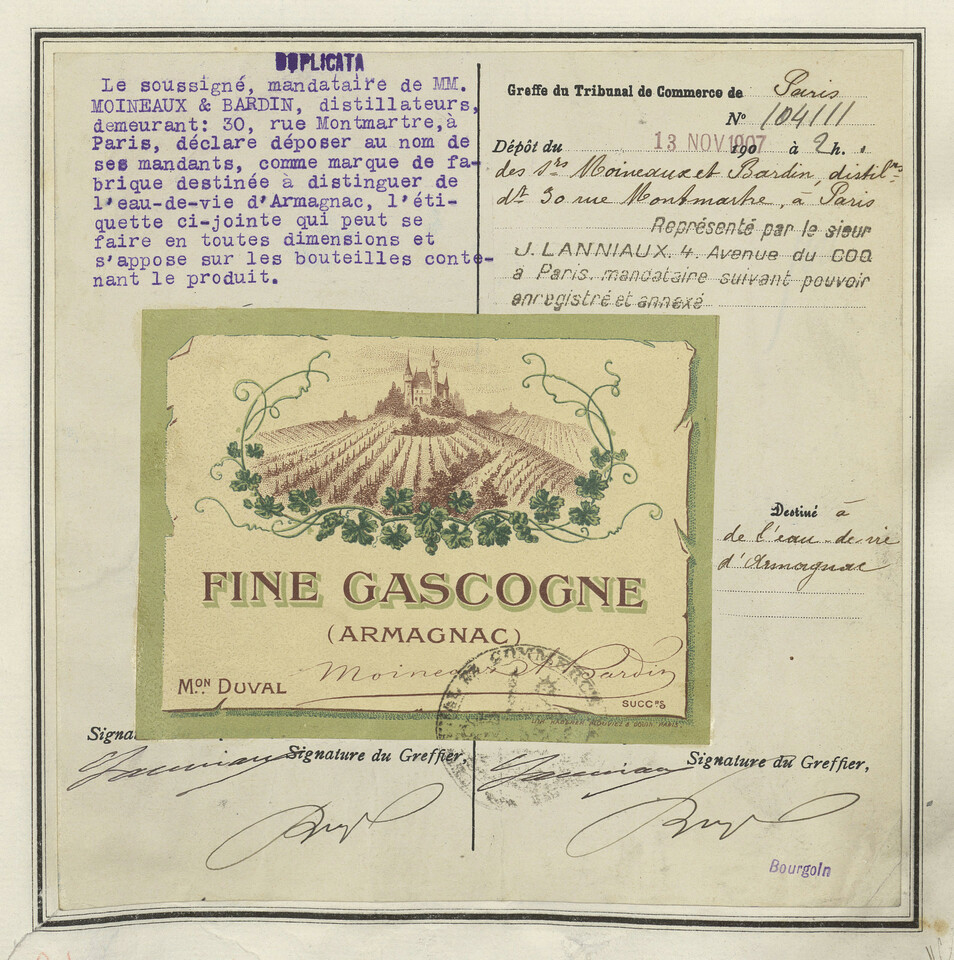 DUPLICATA
Le soussigné, mandataire de MM.
MOINEAUX & BARDIN, distillateurs,
demeurant: 30, rue Montmartre,à
Paris, déclare déposer au nom de
ses mandants, comme marque de fa-
brique destinée à distinguer de
l'eau-de-vie d'Armagnac, l'éti-
quette ci-jointe qui peut se
faire en toutes dimensions et
s'appose sur les bouteilles conte-
nant le produit.
Greffe du Tribunal de Commerce de Paris
N° 104111
Dépôt du 13 NOV 1907 190 à 2 h.
des Srs Moineaux et Bardin, distilrs
dt 30 rue Montmartre, à Paris
Représenté par le sieur
J. LANNIAUX. 4. Avenue du COQ
a Paris. mandataire suivant pouvoir
enregistré et annexé
FINE GASCOGNE
(ARMAGNAC)
Moineaux & Bardin
MON DUVAL
SUCCRS
COMMERCE
Destiné à
de l'eau-de-vie
d'Armagnac
Signa
Signature du Greffier,
Signature du Greffier,
Bourgoin